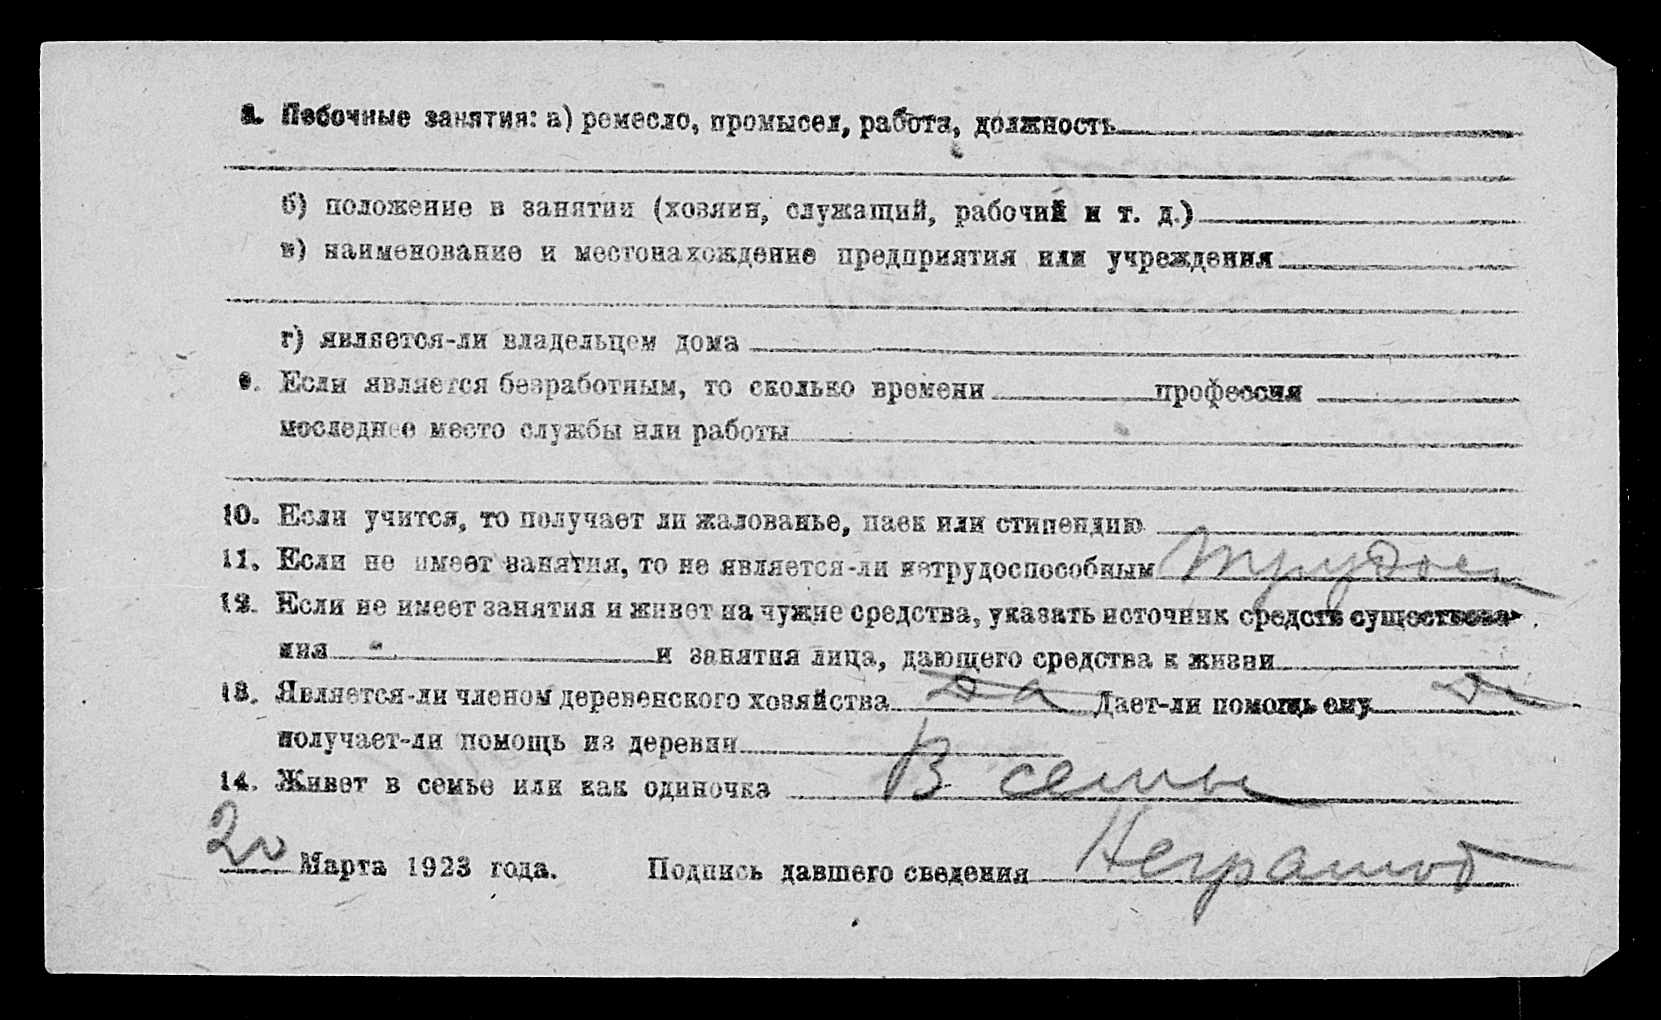 8. Побочные занятия: а) ремесло, промысел, работа, должность
б) положение в занятии (хозяин, служащий, рабочий и т. д.)
в) наименование и местонахождение предприятия или учреждения
г) является-ли владельцем дома
9. Если является безработным, то сколько времени профессия
последнее место службы или работы
10. Если учится, то получает ли жалованье, паек или стипендию
11. Если не имеет занятия, то не является-ли нетрудоспособным Трудосп
12. Если не имеет занятия и живет на чужие средства, указать источник средств существова-
ния - и занятия лица, дающего средства к жизни
13. Является-ли членом деревенского хозяйства Да Дает-ли помощь ему Да
получает-ли помощь из деревни
14. Живет в семье или как одиночка В семье
20 Марта 1923 года. Подпись давшего сведения